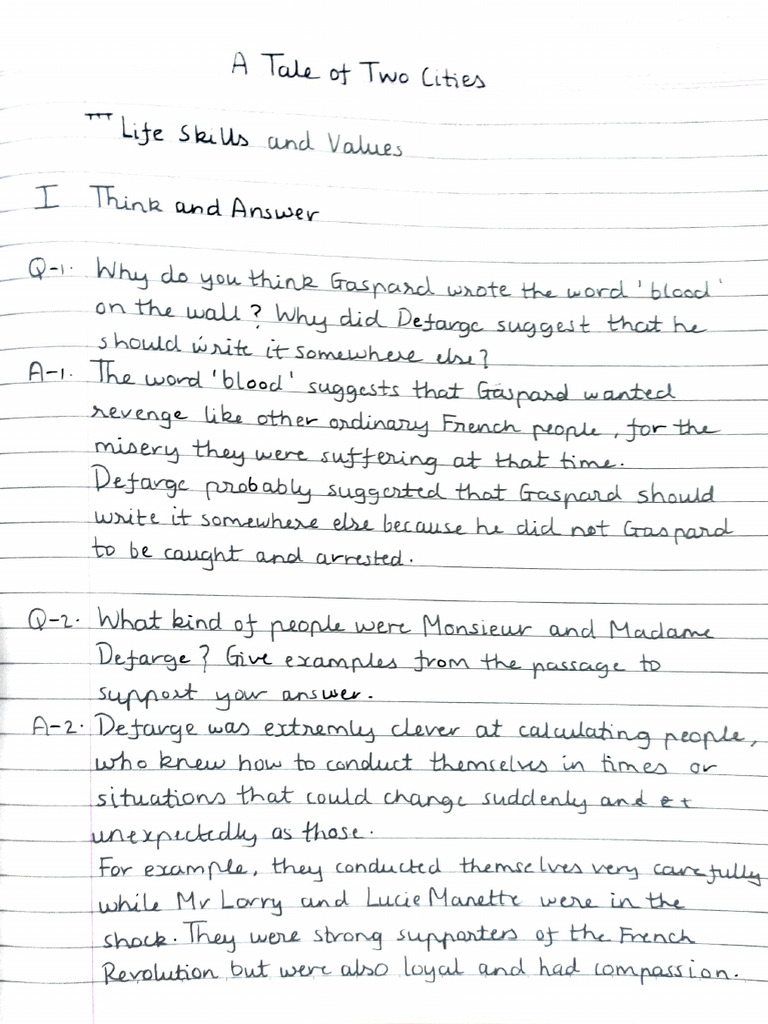 A Tale of Two Cities
Life Skills and Values
I Think and Answer
Q-1. Why do you think Gaspard wrote the word 'blood'
on the wall? Why did Defarge suggest that he
should write it somewhere else?
A-1. The word 'blood' suggests that Gaspard wanted
revenge like other ordinary French people, for the
misery they were suffering at that time.
Defarge probably suggested that Gaspard should
write it somewhere else because he did not Gaspard
to be caught and arrested.
Q-2. What kind of people were Monsieur and Madame
Defarge? Give examples from the passage to
support your answer.
A-2. Defarge was extremly clever at calculating people,
who knew how to conduct themselves in times or
situations that could change suddenly and
unexpectedly as those.
For example, they conducted themselves very carefully
while Mr Lorry and Lucie Manette were in the
shock. They were strong supporters of the French
Revolution but were also loyal and had compassion.